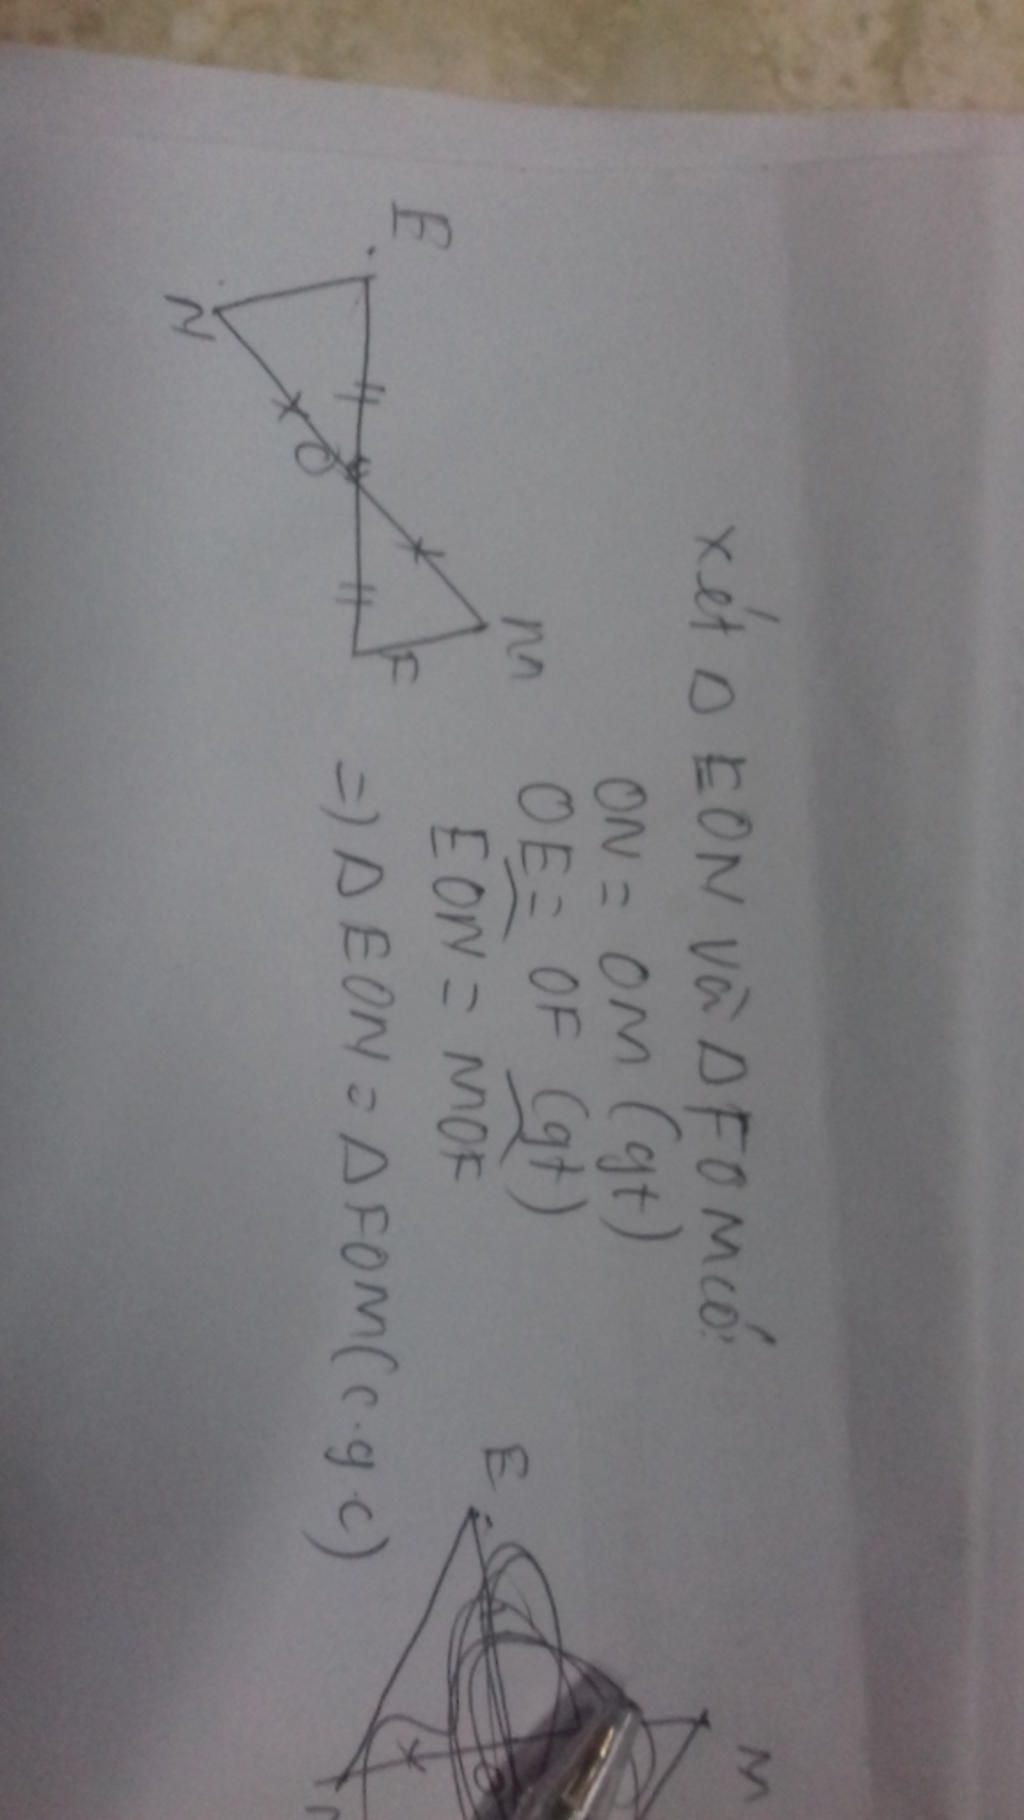 xét Δ EON và Δ FOM có:
ON = OM (gt)
OE = OF (gt)
EON = MOF
=) Δ EON = Δ FOM (c.g.c)
E
N
O
M
F
E
M